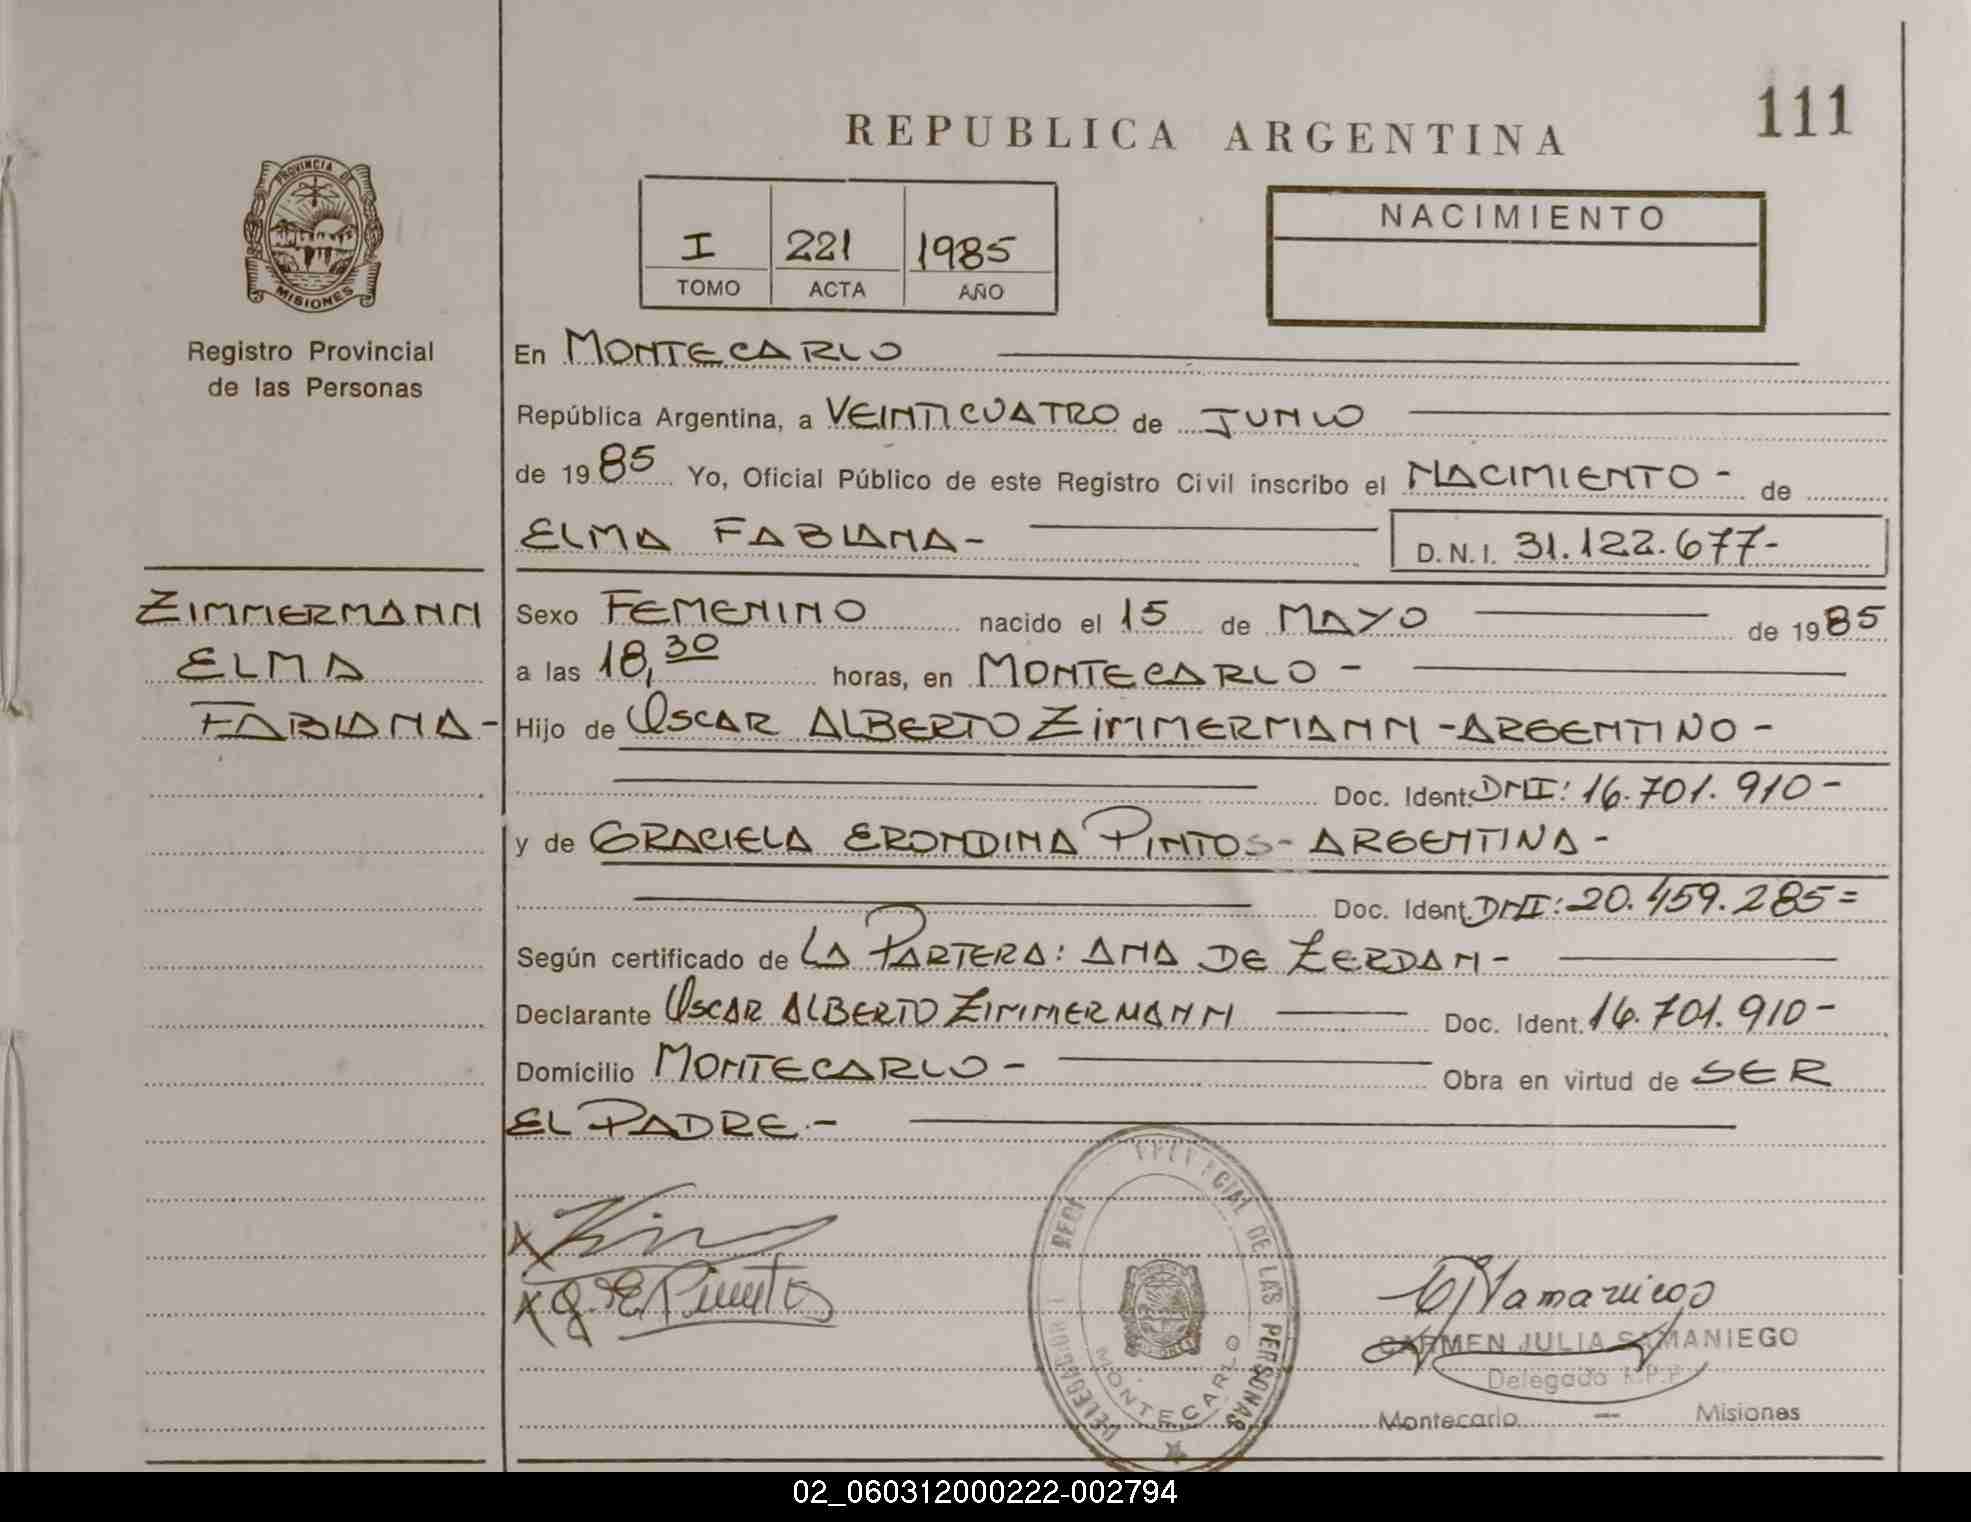 111
REPUBLICA ARGENTINA
PROVINCIA DE
MISIONES
Registro Provincial
de las Personas
I 221 1985
TOMO ACTA AÑO
NACIMIENTO
En MONTECARLO
República Argentina, a VEINTICUATRO de JUNIO
de 1985 Yo, Oficial Público de este Registro Civil inscribo el NACIMIENTO - de
ELMA FABIANA-
D.N.I. 31.122.677-
ZIMMERMANN
ELMA
FABIANA-
Sexo FEMENINO nacido el 15 de MAYO de 1985
a las 18,30 horas, en MONTECARLO -
Hijo de OSCAR ALBERTO ZIMMERMANN -ARGENTINO-
Doc. Ident. DNI: 16.701.910-
y de GRACIELA ERONDINA PINTOS- ARGENTINA-
Doc. Ident. DNI: 20.459.285=
Según certificado de LA PARTERA: ANA DE ZERDAN-
Declarante OSCAR ALBERTO ZIMMERMANN Doc. Ident. 16.701.910-
Domicilio MONTECARLO- Obra en virtud de SER
EL PADRE.-
X
X G. E.
PROVINCIAL DE LAS PERSONAS
MONTECARLO
CARMEN JULIA SAMANIEGO
Delegado R.P.P.
Montecarlo — Misiones
02_060312000222-002794